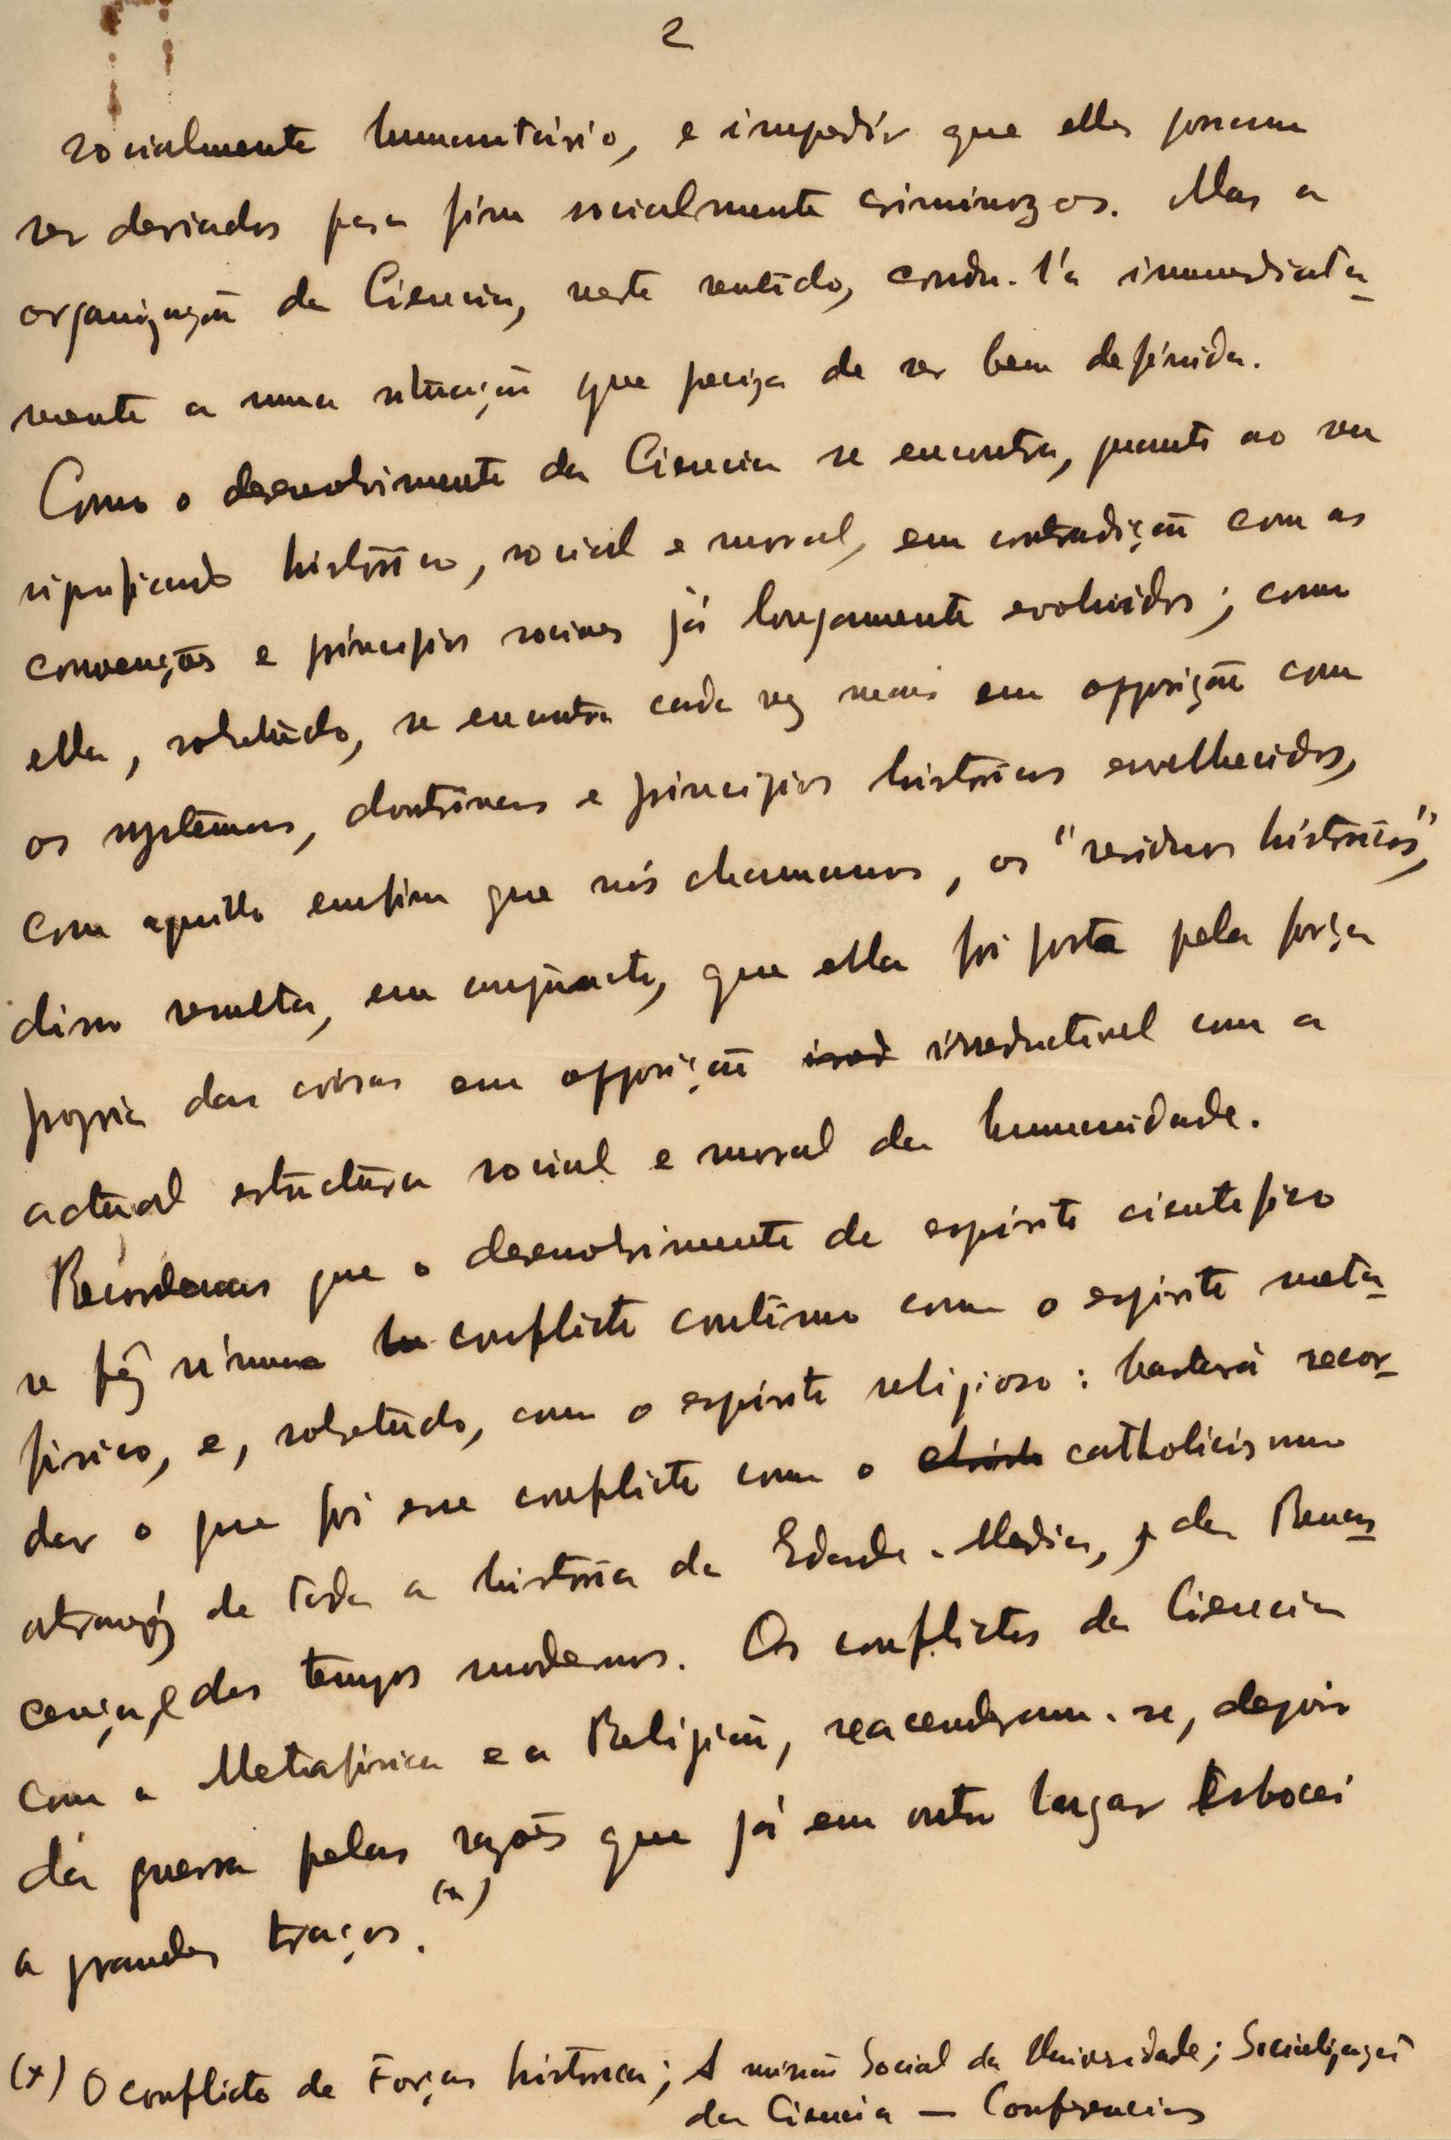 2
socialmente humanitário, e impedir que elles possam
ser desviados para fins socialmente criminozos. Mas a
organização da Ciencia, neste sentido, condu-l'a immediata-
mente a uma situação que preciza de ser bem definida.
Como o desenvolvimento da Ciencia se encontra, quanto ao seu
significado histórico, social e moral, em contradição com as
convenções e principios sociaes já longamente evoluidos; como
ella, sobretudo, se encontra cada vez mais em opposição com
os systemas, doutrinas e principios historicos envelhecidos,
com aquillo emfim que nós chamamos, os "residuos históricos",
disso resulta, em conjuncto, que ella foi posta pela força
propria das coisas em opposição irreductivel com a
actual estructura social e moral da humanidade.
Recordemos que o desenvolvimento do espirito cientifico
se fêz n'um conflicto contínuo com o espirito meta-
fisico, e, sobretudo, com o espirito religioso: bastará recor-
dar o que foi esse conflicto com o catholicismo
atravéz de toda a história da Edade-Media, da Renas-
cença, e dos tempos modernos. Os conflictos da Ciencia
com a Metafisica e a Religião, reacenderam-se, depois
da guerra pelas razões que já em outro lugar esbocei
a grandes traços. (x)
(x) O conflicto de Forças historicas; A missão Social da Universidade; Socialização
da Ciencia — Conferencias